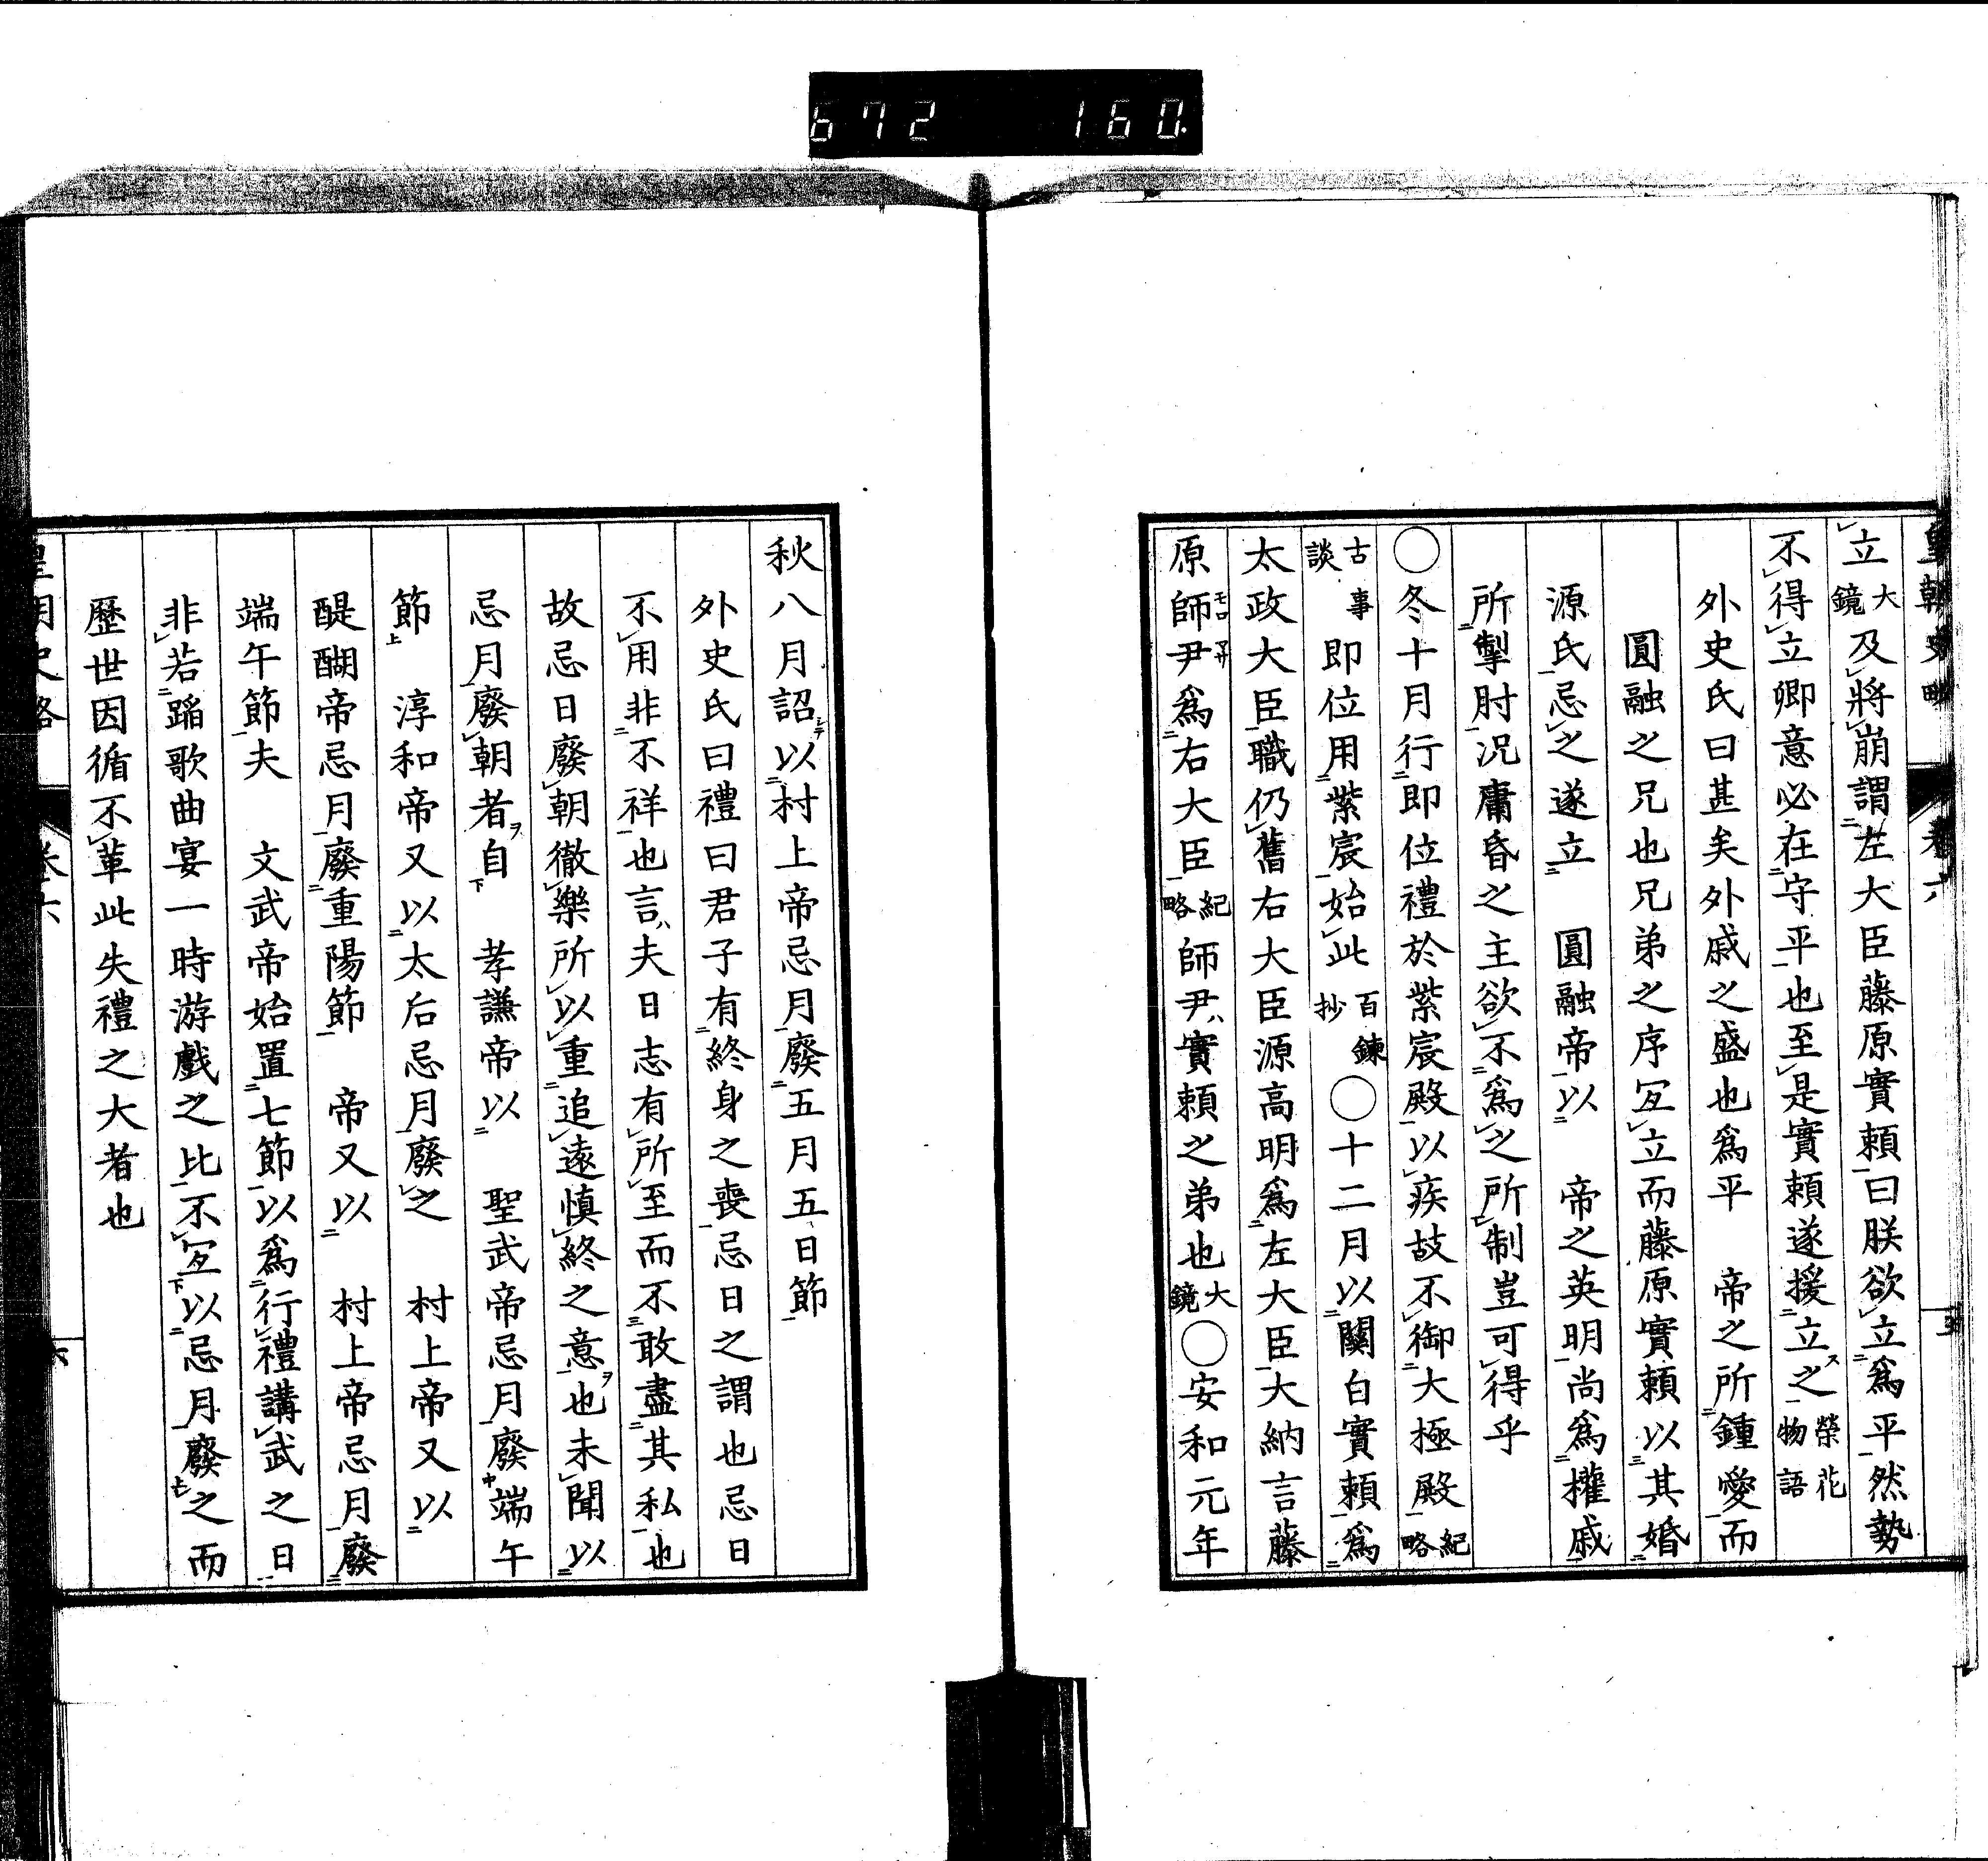 672 160
皇朝史略 卷六
立大鏡及將崩謂左大臣藤原實賴曰朕欲立爲平然勢
不得立卿意必在守平也至是實賴遂援立之榮花物語
外史氏曰甚矣外戚之盛也爲平 帝之所鍾愛而
圓融之兄也兄弟之序宐立而藤原實賴以其婚
源氏忌之遂立 圓融帝以 帝之英明尚爲權戚
所掣肘况庸昏之主欲不爲之所制豈可得乎
○冬十月行即位禮於紫宸殿以疾故不御大極殿紀略
古事談即位用紫宸始此百鍊抄○十二月以關白實賴爲
太政大臣職仍舊右大臣源高明爲左大臣大納言藤
原師尹爲右大臣紀略師尹實賴之弟也大鏡○安和元年
秋八月詔以村上帝忌月廢五月五日節
外史氏曰禮曰君子有終身之喪忌日之謂也忌日
不用非不祥也言夫日志有所至而不敢盡其私也
故忌日廢朝徹樂所以重追遠慎終之意也未聞以
忌月廢朝者自 孝謙帝以 聖武帝忌月廢端午
節 淳和帝又以太后忌月廢之 村上帝又以
醍醐帝忌月廢重陽節 帝又以 村上帝忌月廢
端午節夫 文武帝始置七節以爲行禮講武之日
非若蹈歌曲宴一時游戲之比不宐以忌月廢之而
歷世因循不革此失禮之大者也
皇朝史略 卷六 六